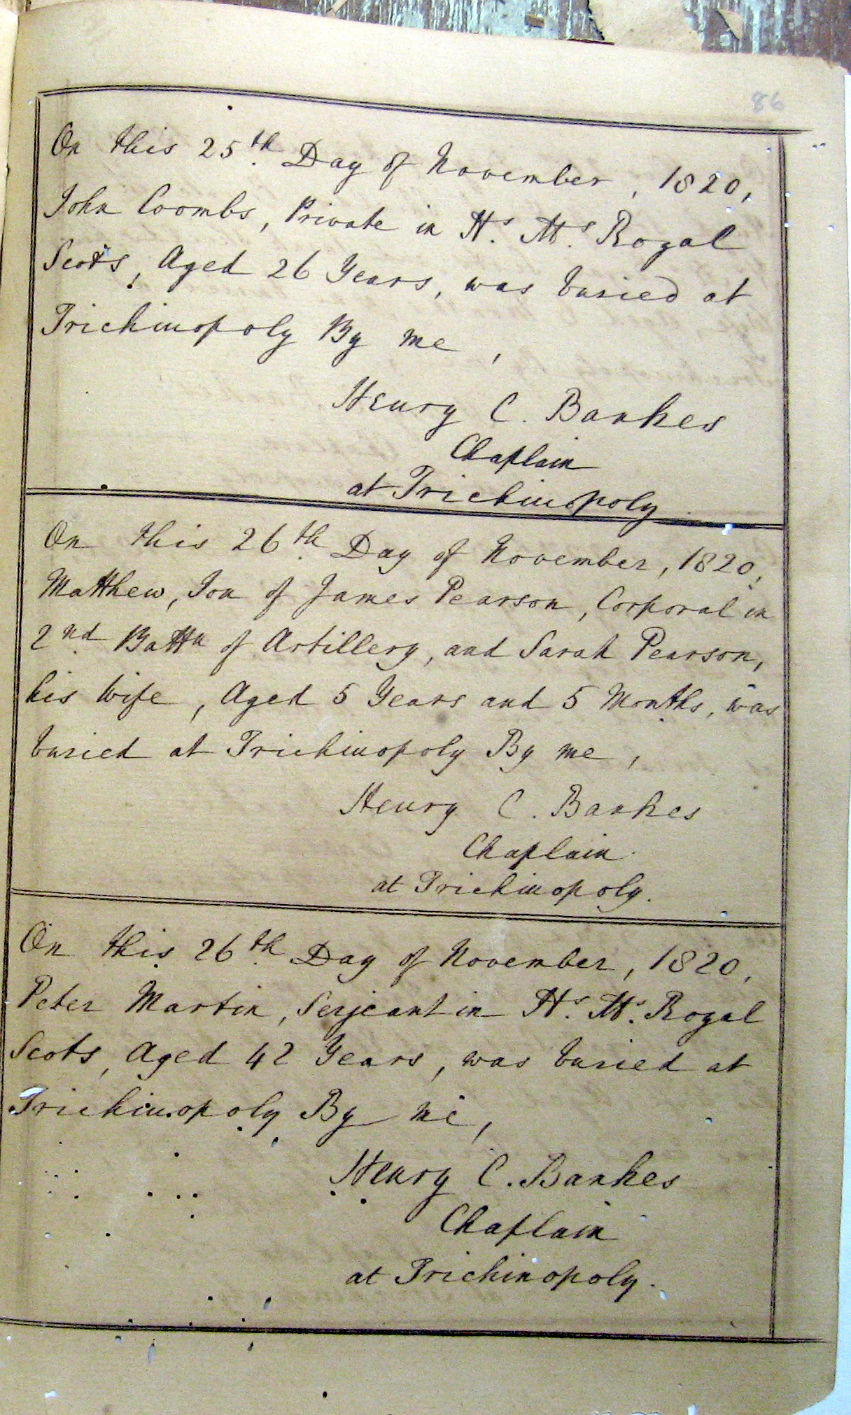 86
On this 25th Day of November, 1820,
John Coombs, Private in H.s M.s Royal
Scots, Aged 26 Years, was buried at
Trichinopoly By me,
Henry C. Bankes
Chaplain
at Trichinopoly.
On this 26th Day of November, 1820,
Matthew, Son of James Pearson, Corporal in
2nd Battn of Artillery, and Sarah Pearson,
his Wife, Aged 5 Years and 5 Months, was
buried at Trichinopoly By me,
Henry C. Bankes
Chaplain
at Trichinopoly.
On this 26th Day of November, 1820,
Peter Martin, Serjeant in H.s M.s Royal
Scots, Aged 42 Years, was buried at
Trichinopoly By me,
Henry C. Bankes
Chaplain
at Trichinopoly.